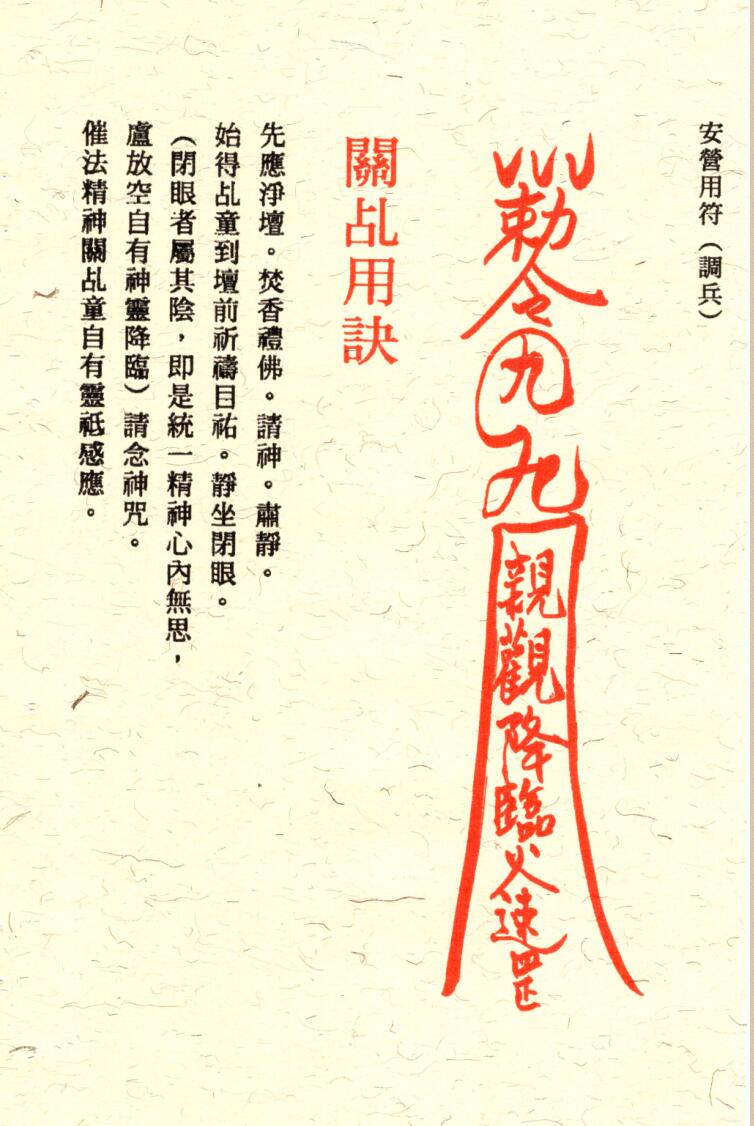 安營用符（調兵）
勅令九九
親觀降臨火速罡
關乩用訣
先應淨壇。焚香禮佛。請神。肅靜。
始得乩童到壇前祈禱目祐。靜坐閉眼。
（閉眼者屬其陰，即是統一精神心內無思，
盧放空自有神靈降臨）請念神咒。
催法精神關乩童自有靈祇感應。